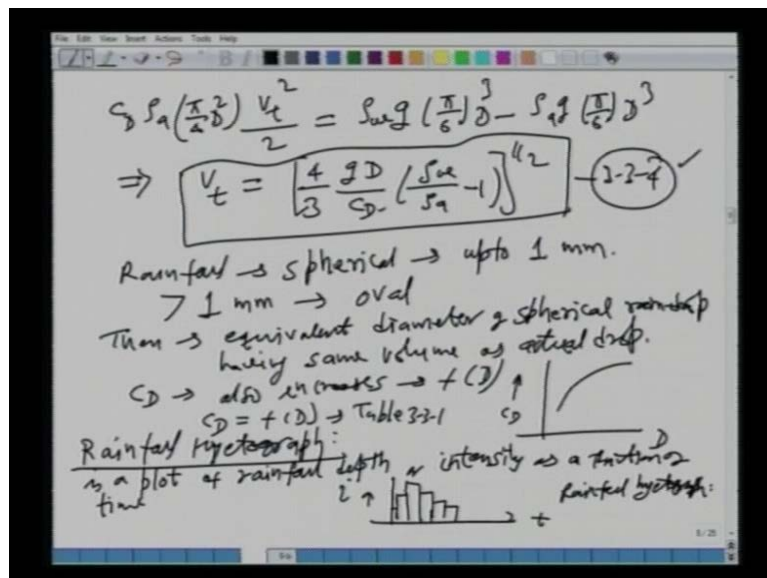 File Edit View Insert Actions Tools Help
C_D ρ_a (π/4 D²) V_t²/2 = ρ_w g (π/6) D³ - ρ_a g (π/6) D³
⇒ V_t = [4/3 gD/C_D (ρ_w/ρ_a - 1)]^1/2 - 3-3-4 ✓
Rainfall → spherical → upto 1 mm.
> 1 mm → oval
Then → equivalent diameter of spherical raindrop
having same volume as actual drop.
C_D → also increases → f(D) ↑
C_D = f(D) → Table 3-3-1
C_D
D
Rainfall Hyetograph:
is a plot of rainfall depth or intensity as a function of
time
i ↑
→ t
Rainfall hyetograph: